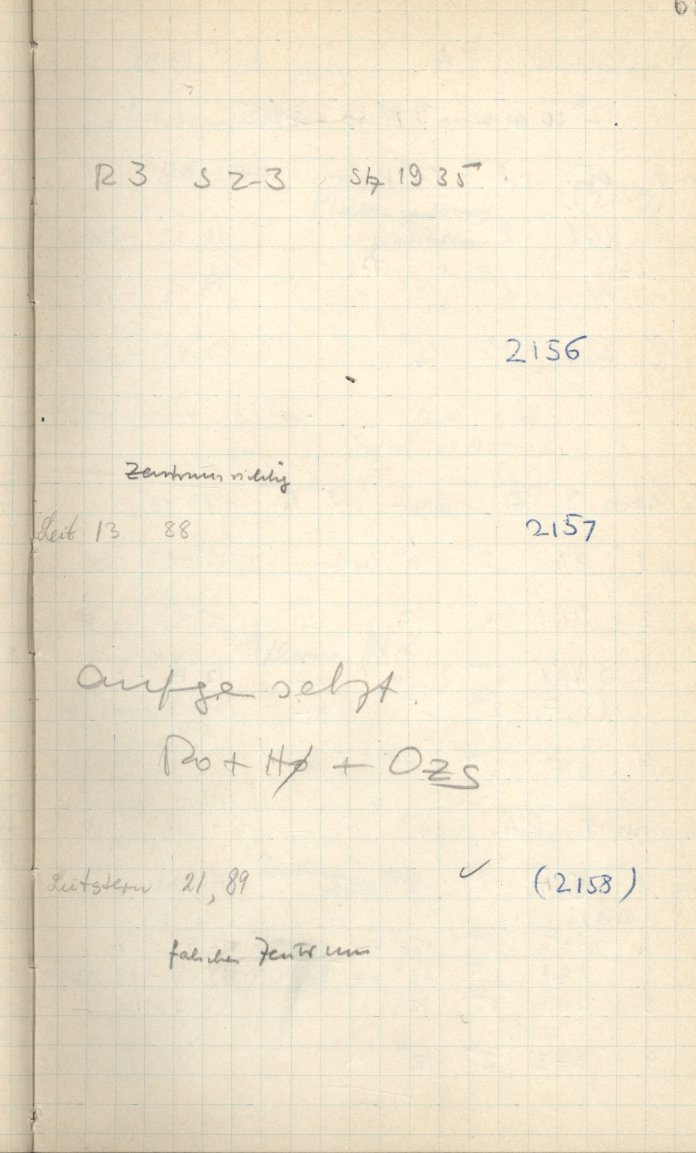 R 3 S 2-3 Stz 1935
2156
Zentrum richtig
Leit 13 88 2157
aufgesetzt.
Ro + Hø + Ozs
Leitstern 21, 89 ✓ (2158)
falsches Zentrum